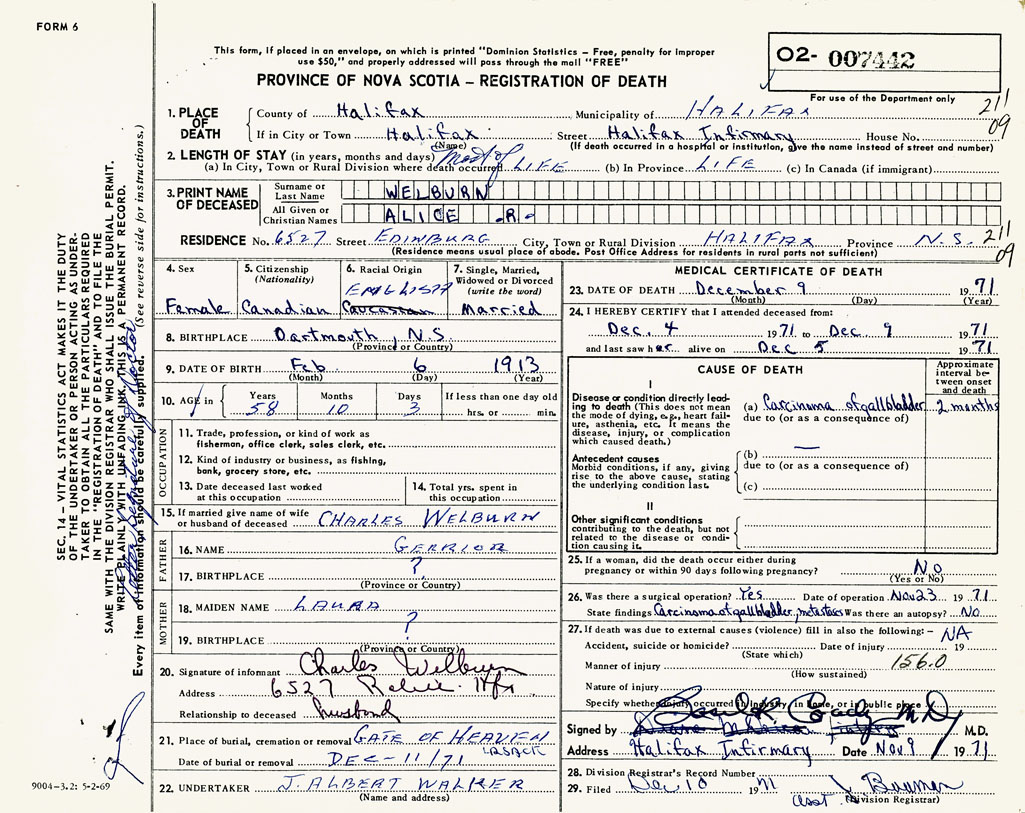 FORM 6
This form, if placed in an envelope, on which is printed "Dominion Statistics – Free, penalty for improper
use $50," and properly addressed will pass through the mail "FREE"
PROVINCE OF NOVA SCOTIA – REGISTRATION OF DEATH
O2- 007442
For use of the Department only
211
09
1. PLACE OF DEATH
County of Halifax Municipality of HALIFAX
If in City or Town Halifax Street Halifax Infirmary House No.
(Name) (If death occurred in a hospital or institution, give the name instead of street and number)
2. LENGTH OF STAY (in years, months and days) most of
(a) In City, Town or Rural Division where death occurred LIFE (b) In Province LIFE (c) In Canada (if immigrant)
3. PRINT NAME OF DECEASED
Surname or Last Name WELBURN
All Given or Christian Names ALICE R.
RESIDENCE No. 6527 Street EDINBURG City, Town or Rural Division HALIFAX Province N.S. 211
09
(Residence means usual place of abode. Post Office Address for residents in rural parts not sufficient)
4. Sex Female
5. Citizenship (Nationality) Canadian
6. Racial Origin ENGLISH Caucasian
7. Single, Married, Widowed or Divorced (write the word) Married
8. BIRTHPLACE Dartmouth, N.S.
(Province or Country)
9. DATE OF BIRTH Feb 6 1913
(Month) (Day) (Year)
10. AGE in Years 58 Months 10 Days 3 If less than one day old hrs. or min.
OCCUPATION
11. Trade, profession, or kind of work as
fisherman, office clerk, sales clerk, etc.
12. Kind of industry or business, as fishing,
bank, grocery store, etc.
13. Date deceased last worked at this occupation
14. Total yrs. spent in this occupation
15. If married give name of wife or husband of deceased CHARLES WELBURN
FATHER
16. NAME GERRIOR
17. BIRTHPLACE ?
(Province or Country)
MOTHER
18. MAIDEN NAME LAURA
19. BIRTHPLACE ?
(Province or Country)
20. Signature of informant Charles Welburn
Address 6527 Hfx
Relationship to deceased husband
21. Place of burial, cremation or removal GATE OF HEAVEN
Date of burial or removal DEC-11/71
22. UNDERTAKER J. ALBERT WALKER
(Name and address)
MEDICAL CERTIFICATE OF DEATH
23. DATE OF DEATH December 9 1971
(Month) (Day) (Year)
24. I HEREBY CERTIFY that I attended deceased from:
Dec. 4 1971 to Dec 9 1971
and last saw her alive on Dec 5 1971
CAUSE OF DEATH
Approximate interval between onset and death
I
Disease or condition directly leading to death (This does not mean the mode of dying, e.g., heart failure, asthenia, etc. It means the disease, injury, or complication which caused death.)
(a) Carcinoma of gallbladder 2 months
due to (or as a consequence of)
Antecedent causes
Morbid conditions, if any, giving rise to the above cause, stating the underlying condition last.
(b) —
due to (or as a consequence of)
(c)
II
Other significant conditions
contributing to the death, but not related to the disease or condition causing it.
25. If a woman, did the death occur either during
pregnancy or within 90 days following pregnancy? No
(Yes or No)
26. Was there a surgical operation? Yes Date of operation Nov 23 1971
State findings Carcinoma of gallbladder, metastases Was there an autopsy? No
27. If death was due to external causes (violence) fill in also the following:– NA
Accident, suicide or homicide? Date of injury 19
(State which)
Manner of injury 156.0
(How sustained)
Nature of injury
Specify whether injury occurred in industry, in home, or in public place
Signed by M.D. M.D.
Address Halifax Infirmary Date Nov 9 1971
28. Division Registrar's Record Number
29. Filed Dec 10 1971
Asst. (Division Registrar)
SEC. 14 – VITAL STATISTICS ACT MAKES IT THE DUTY
OF THE UNDERTAKER OR PERSON ACTING AS UNDER-
TAKER TO OBTAIN ALL THE PARTICULARS REQUIRED
IN THE "REGISTRATION OF DEATH" AND TO FILE THE
SAME WITH THE DIVISION REGISTRAR WHO SHALL ISSUE THE BURIAL PERMIT.
WRITE PLAINLY WITH UNFADING INK, THIS IS A PERMANENT RECORD.
Every item of information should be carefully supplied. (See reverse side for instructions.)
9004–3.2: 5-2-69